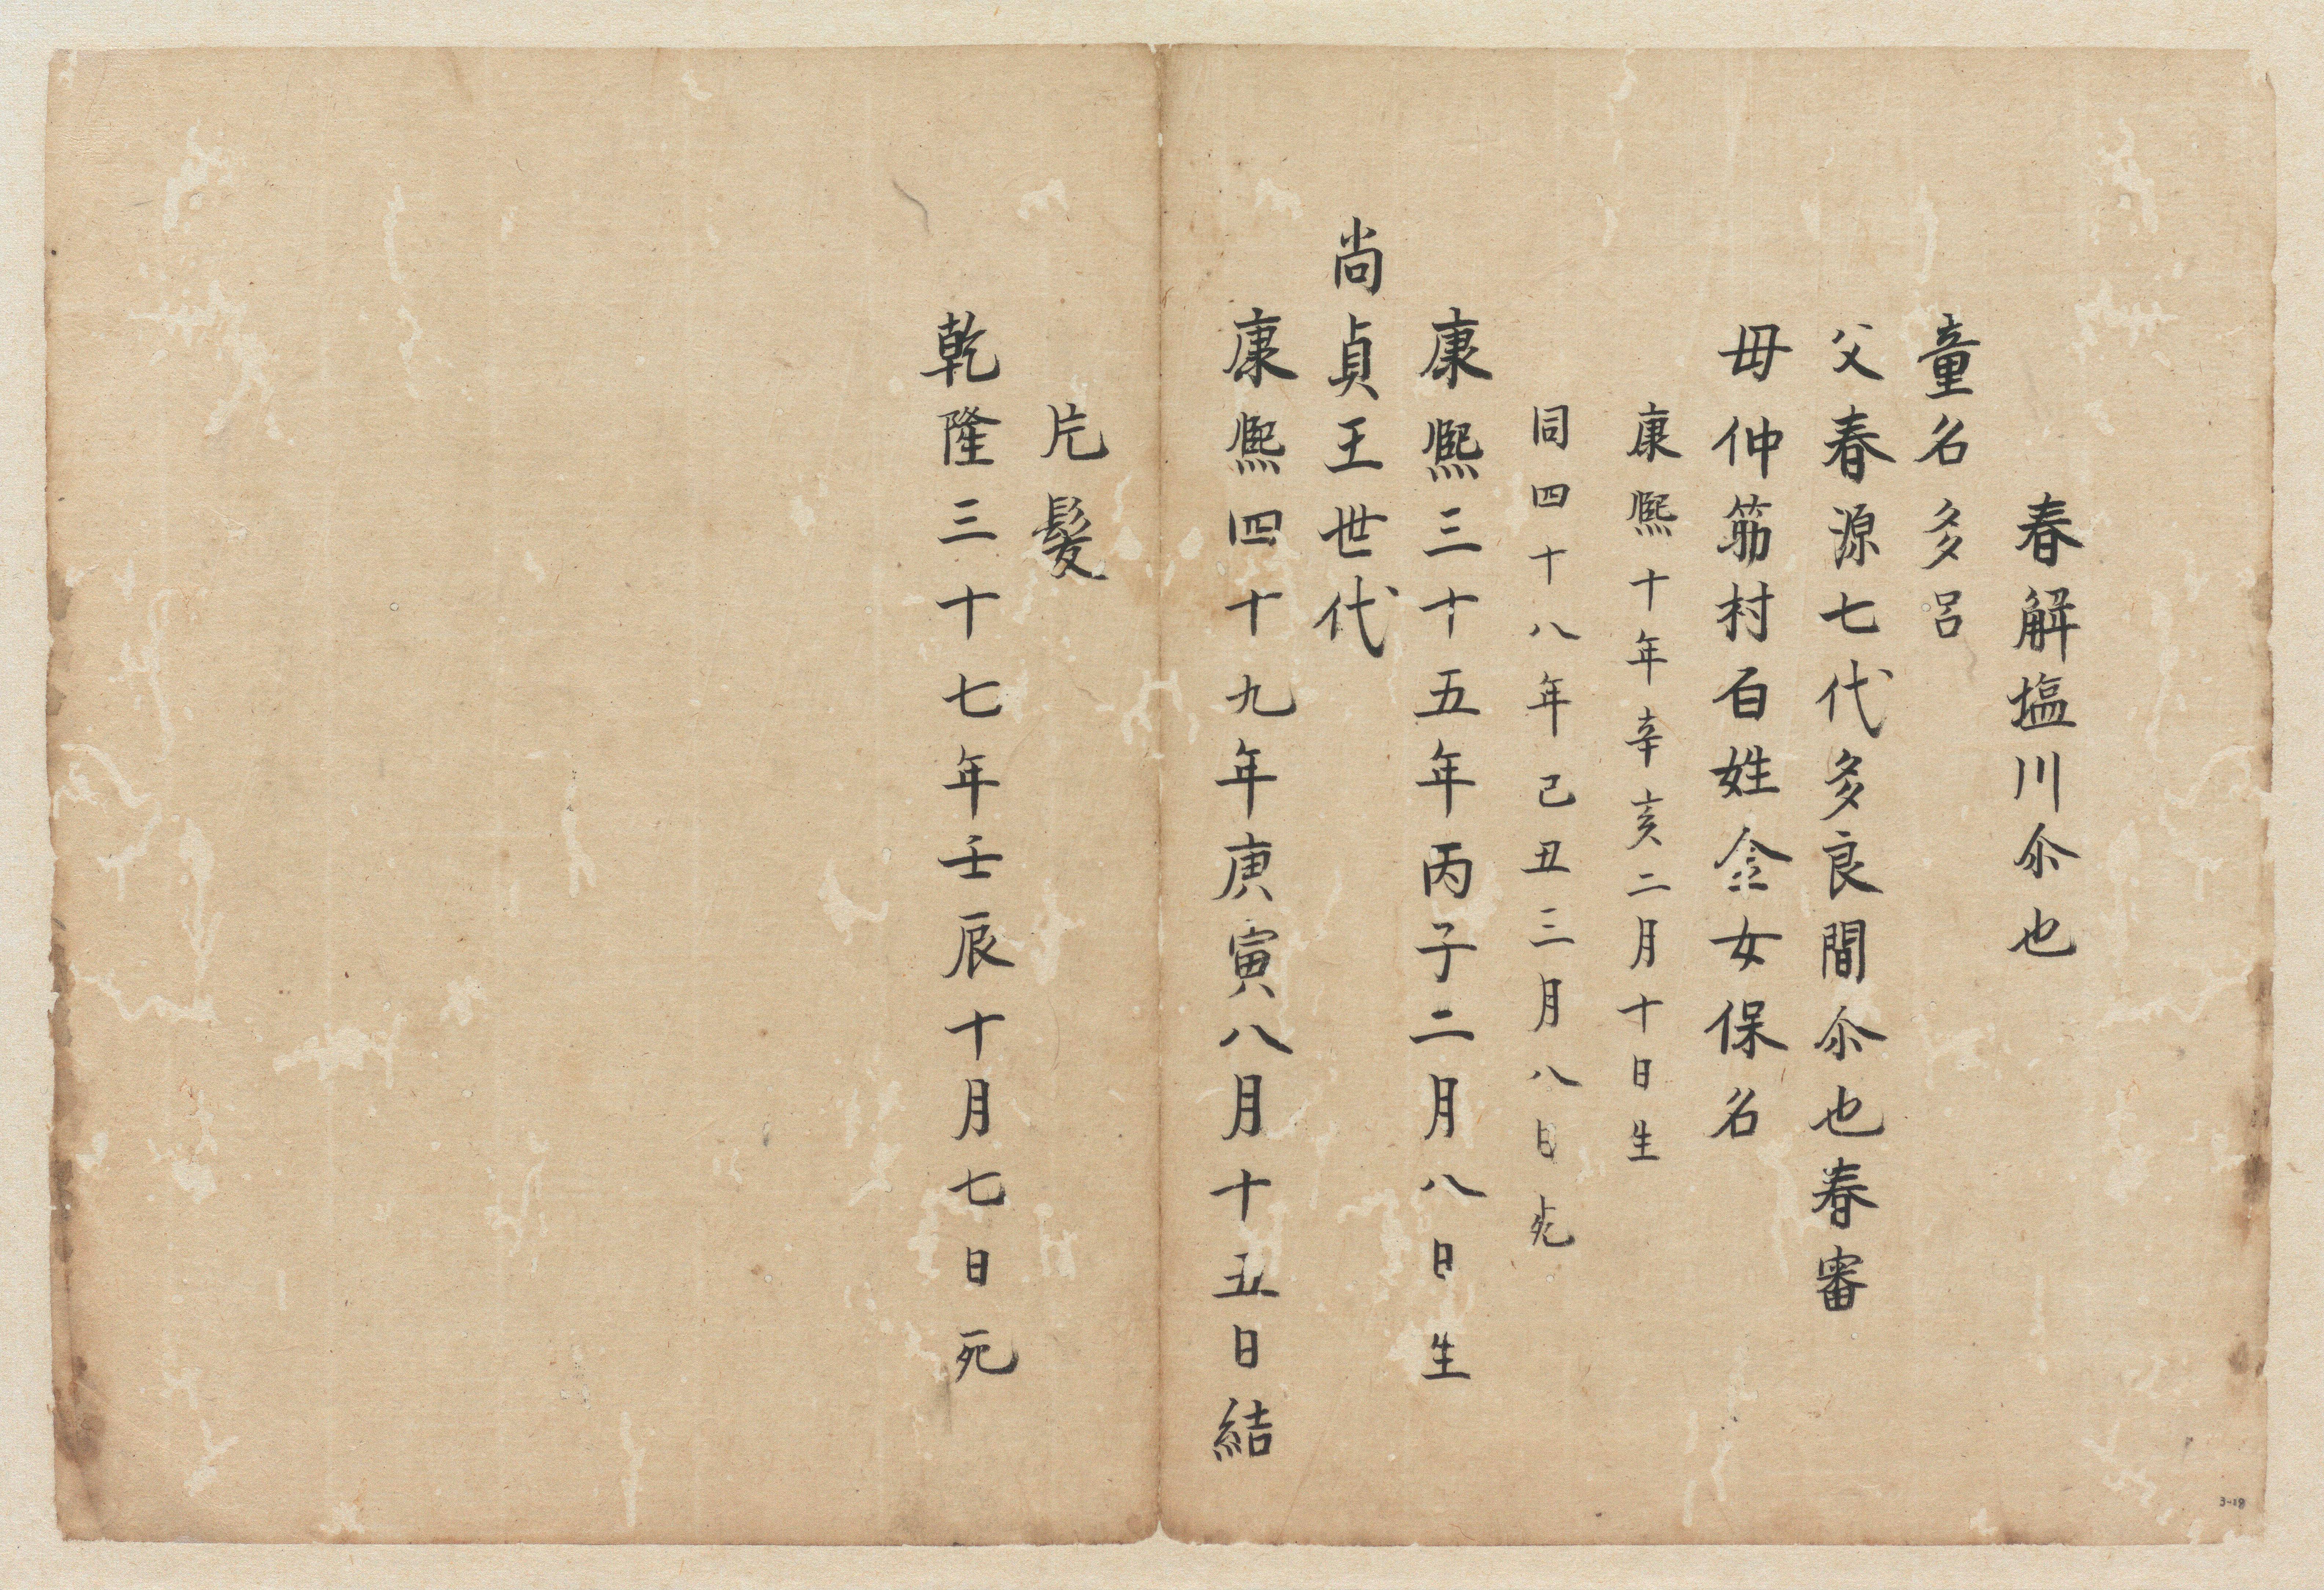 春解塩川尒也
童名多呂
父春源七代多良間尒也春審
母仲筋村百姓金女保名
康熙十年辛亥二月十日生
同四十八年己丑三月八日死
康熙三十五年丙子二月八日生
尚貞王世代
康熙四十九年庚寅八月十五日結
片髮
乾隆三十七年壬辰十月七日死
3-18